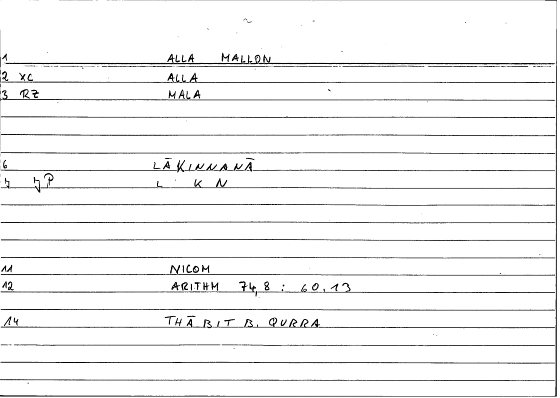 1 ALLA MALLON
2 XC ALLA
3 RZ MALA
6 LĀKINNANĀ
7 L K N
11 NICOM
12 ARITHM 74,8 : 60,13
14 THĀBIT B. QURRA